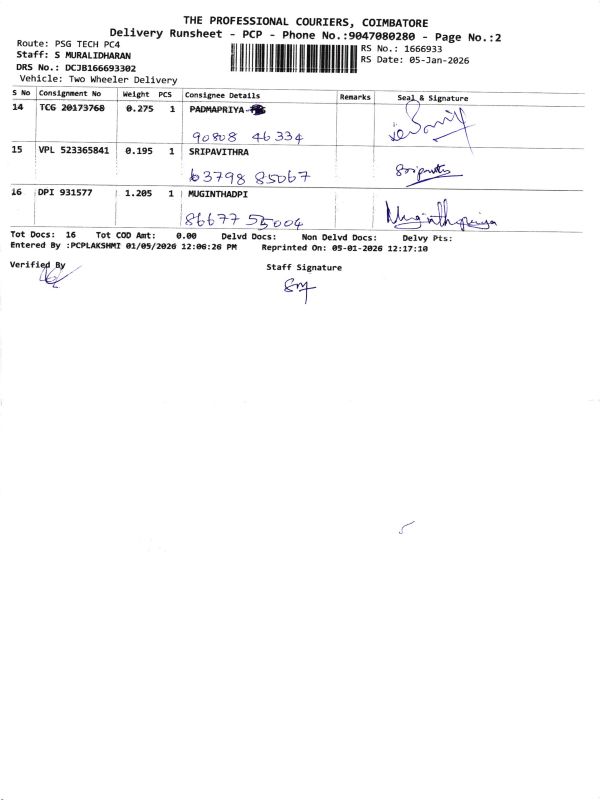 THE PROFESSIONAL COURIERS, COIMBATORE
Delivery Runsheet - PCP - Phone No.:9047080280 - Page No.:2
Route: PSG TECH PC4
Staff: S MURALIDHARAN
DRS No.: DCJB166693302
Vehicle: Two Wheeler Delivery
RS No.: 1666933
RS Date: 05-Jan-2026
S No Consignment No Weight PCS Consignee Details Remarks Seal & Signature
14 TCG 20173768 0.275 1 PADMAPRIYA-
90808 46334
15 VPL 523365841 0.195 1 SRIPAVITHRA
63798 85067 Sripavithra
16 DPI 931577 1.205 1 MUGINTHADPI
86677 55004 Muginthapriya
Tot Docs: 16 Tot COD Amt: 0.00 Delvd Docs: Non Delvd Docs: Delvy Pts:
Entered By :PCPLAKSHMI 01/05/2026 12:06:26 PM Reprinted On: 05-01-2026 12:17:10
Verified By
Staff Signature